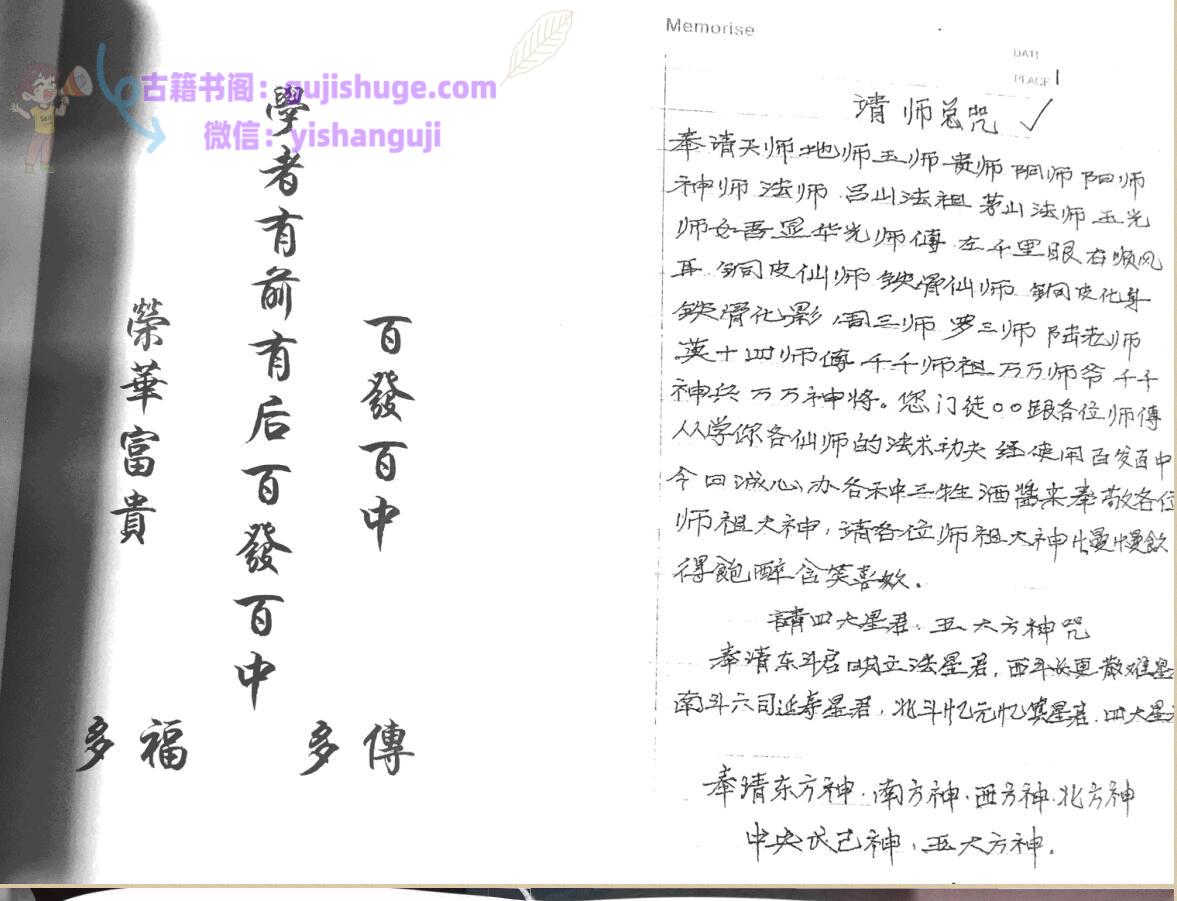 古籍书阁：gujishuge.com
微信：yishanguji
百發百中
學者有前有后百發百中
榮華富貴
多傳
多福
Memorise
DATE
PLACE
请师总咒
奉请天师地师玉师贵师阴师阳师
神师法师吕山法祖茅山法师五光
师女吾显华光师傅左千里眼右顺风
耳铜皮仙师铁骨仙师铜皮化身
铁骨化影周三师罗三师陆老师
莫十四师傅千千师祖万万师爷千千
神兵万万神将。您门徒○○跟各位师傅
从学你各仙师的法术功夫经使用百发百中
今日诚心办各种三牲酒酱来奉敬各位
师祖大神，请各位师祖大神慢慢飲
得飽醉含笑喜欢。
請四大星君、五大方神咒
奉请东斗启明立法星君，西斗长更散难星
南斗六司延寿星君，北斗忆元忆算星君．四大星
奉请东方神．南方神．西方神．北方神
中央戊己神，五大方神。